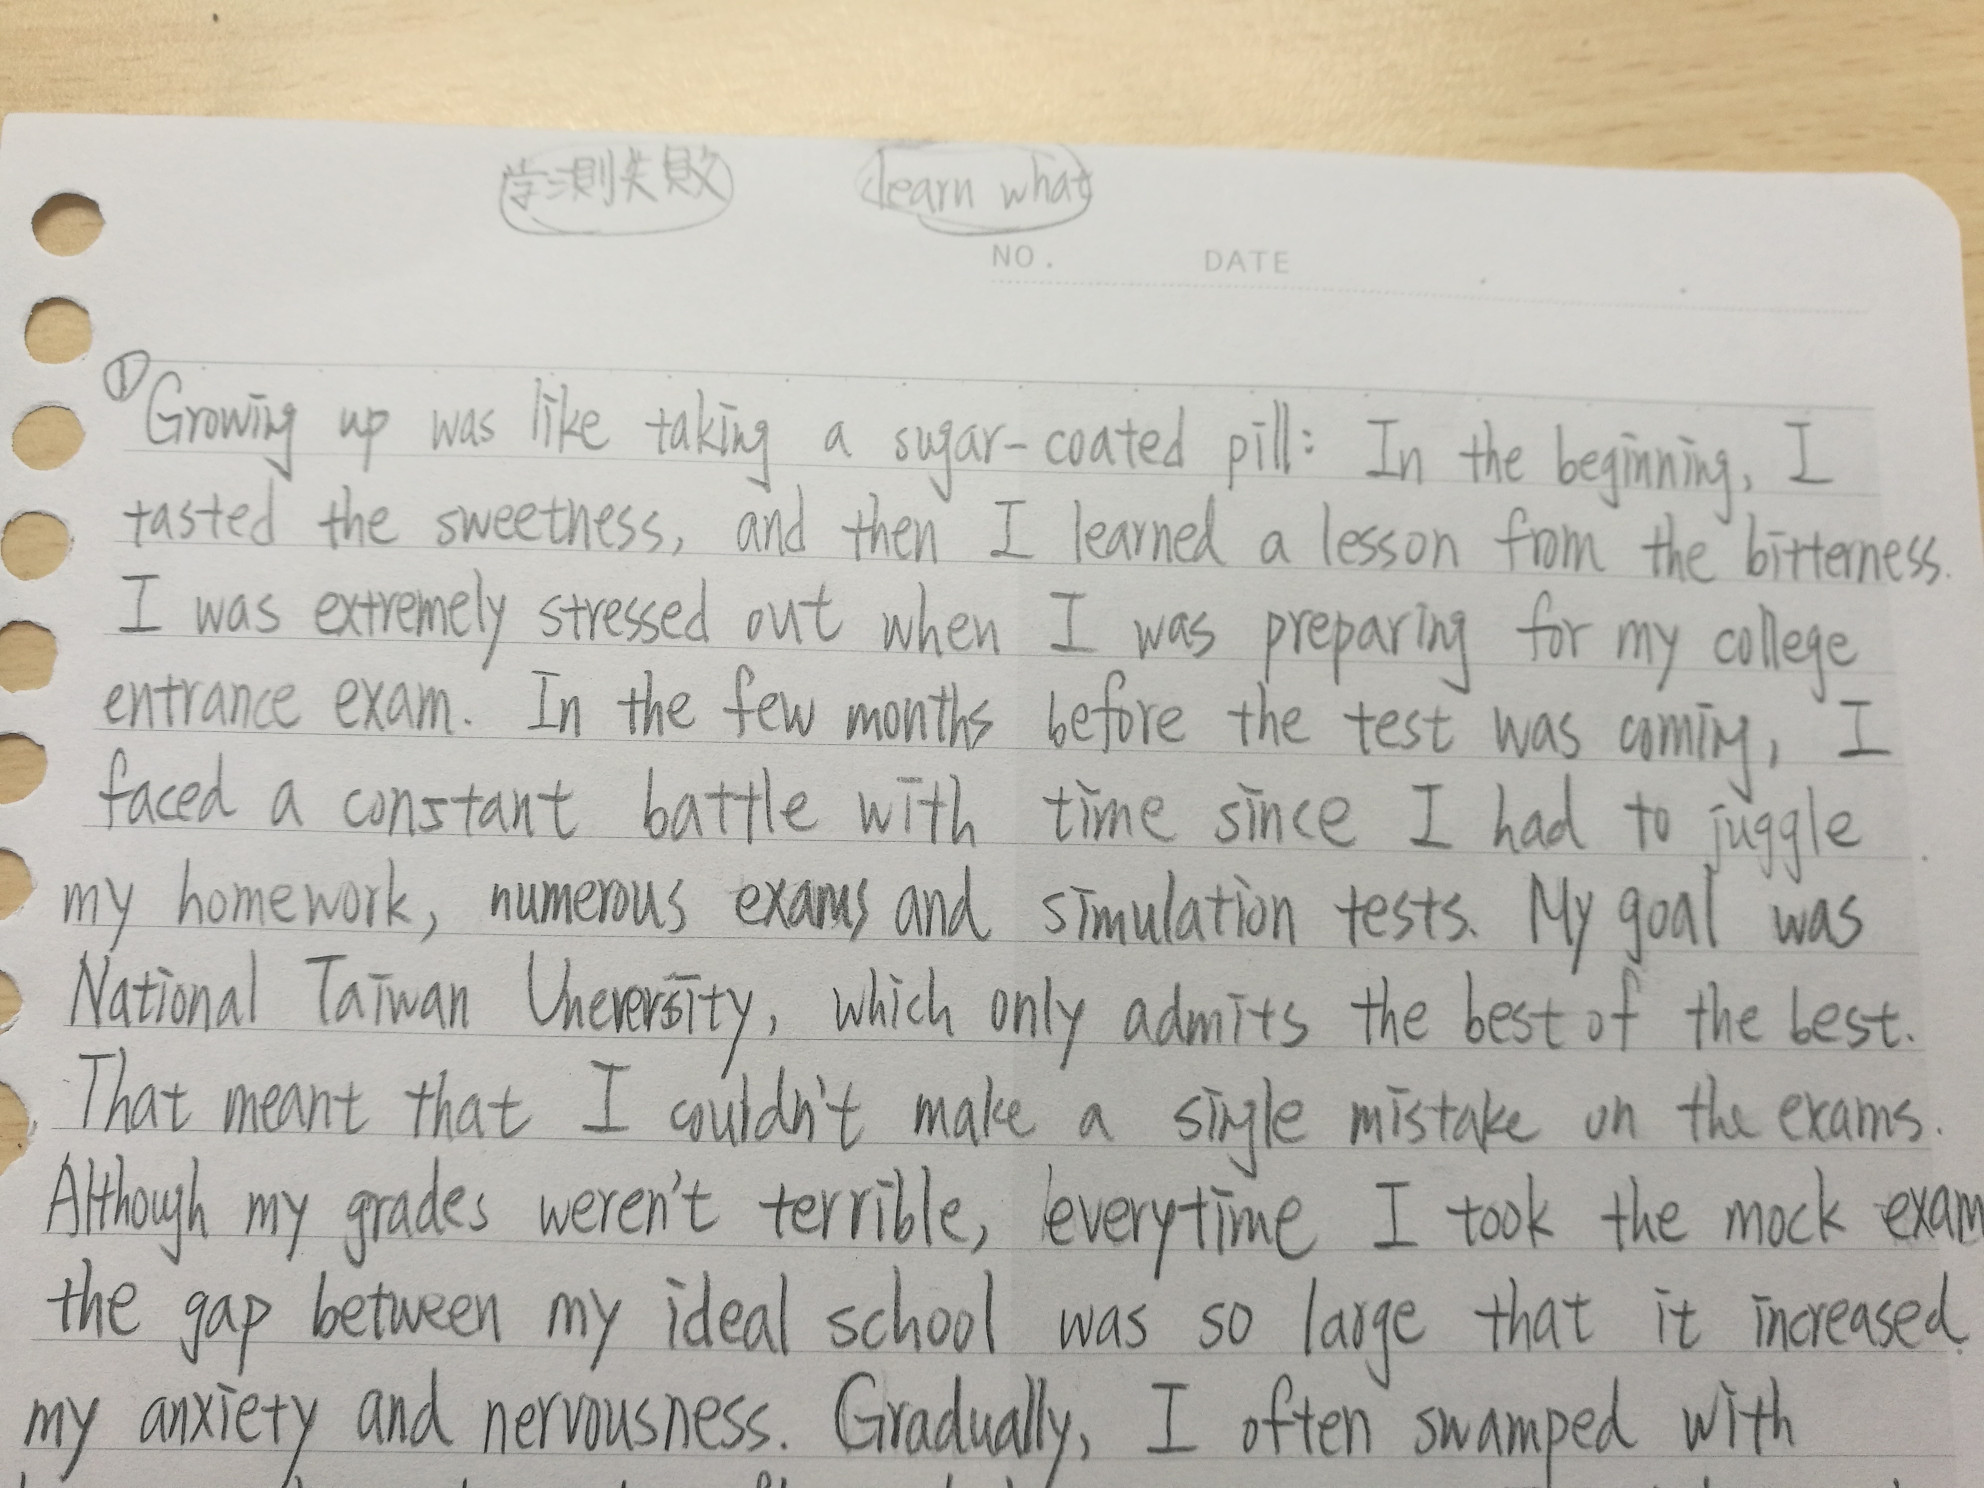 学測失敗 learn what
NO. DATE
① Growing up was like taking a sugar-coated pill: In the beginning, I
tasted the sweetness, and then I learned a lesson from the bitterness.
I was extremely stressed out when I was preparing for my college
entrance exam. In the few months before the test was coming, I
faced a constant battle with time since I had to juggle
my homework, numerous exams and simulation tests. My goal was
National Taiwan Uneversity, which only admits the best of the best.
That meant that I couldn't make a single mistake on the exams.
Although my grades weren't terrible, everytime I took the mock exam
the gap between my ideal school was so large that it increased
my anxiety and nervousness. Gradually, I often swamped with